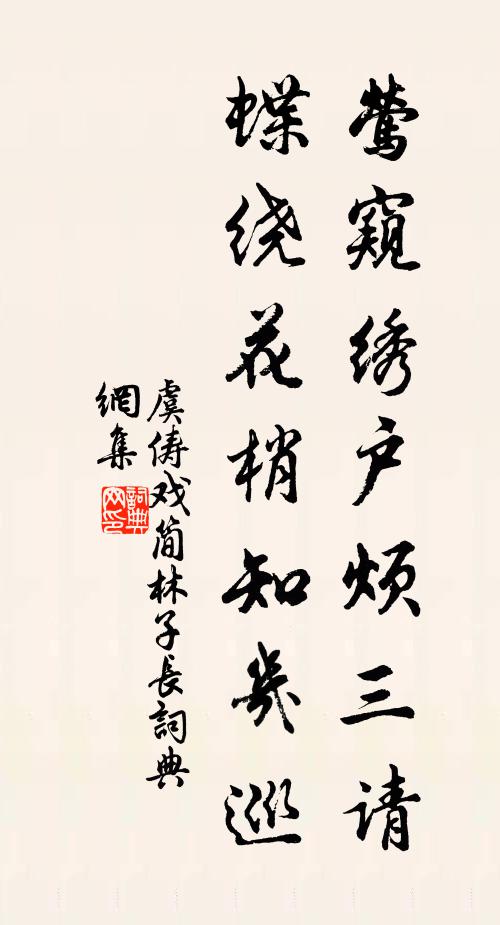 莺窥绣户烦三请
蝶绕花梢知几巡
虞俦戏简林子長詞典
網集
詞典
网印